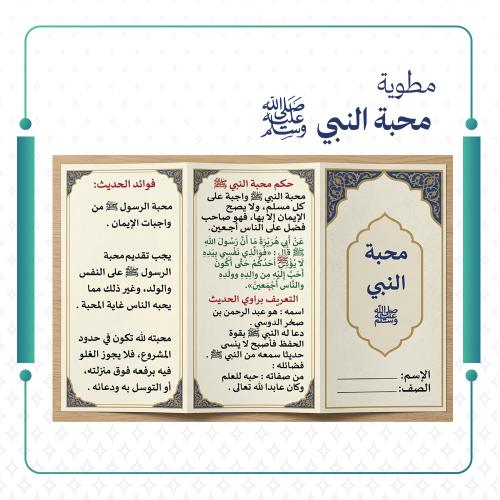 مطوية
محبة النبي ﷺ
محبة
النبي
ﷺ
الإسم:
الصف:
حكم محبة النبي ﷺ
محبة النبي ﷺ واجبة على
كل مسلم، ولا يصح
الإيمان إلا بها، فهو صاحب
فضل على الناس أجمعين.
عَنْ أَبِي هُرَيْرَةَ أَنَّ رَسُولَ اللهِ
ﷺ قَالَ: «فَوَالَّذِي نَفْسِي بِيَدِهِ
لَا يُؤْمِنُ أَحَدُكُمْ حَتَّى أَكُونَ
أَحَبَّ إِلَيْهِ مِن وَالِدِهِ وَوَلَدِهِ
وَالنَّاسِ أَجْمَعِينَ».
التعريف براوي الحديث
اسمه : هو عبد الرحمن بن
صخر الدوسي .
دعا له النبي ﷺ بقوة
الحفظ فأصبح لا ينسى
حديثا سمعه من النبي ﷺ .
فضائله :
من صفاته : حبه للعلم
وكان عابدا لله تعالى .
فوائد الحديث:
محبة الرسول ﷺ من
واجبات الإيمان .
يجب تقديم محبة
الرسول ﷺ على النفس
والولد، وغير ذلك مما
يحبه الناس غاية المحبة .
محبته لله تكون في حدود
المشروع، فلا يجوز الغلو
فيه برفعه فوق منزلته،
أو التوسل به ودعائه .